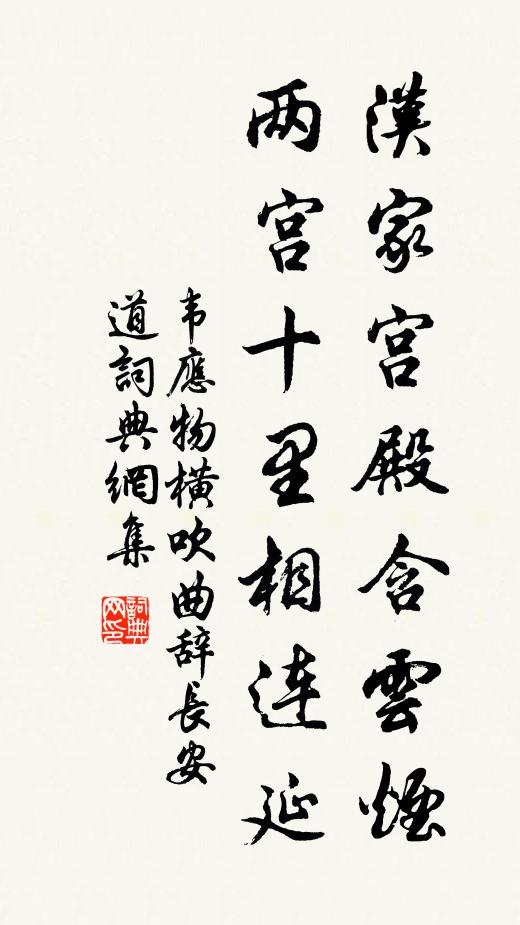 漢家宫殿含雲煙
两宫十里相连延
韦應物橫吹曲辞長安
道詞典網集
詞典网印